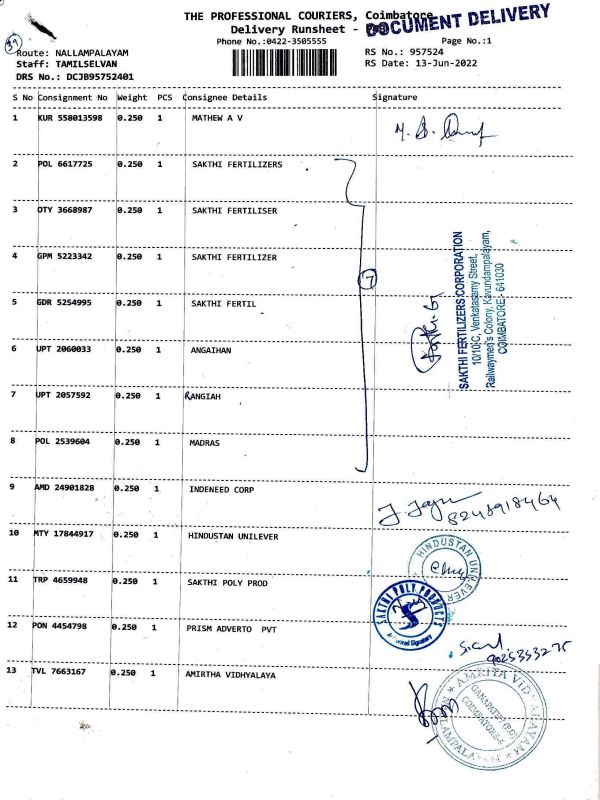 THE PROFESSIONAL COURIERS, Coimbatore
DOCUMENT DELIVERY
Delivery Runsheet -
39
Phone No.:0422-3505555 Page No.:1
Route: NALLAMPALAYAM RS No.: 957524
Staff: TAMILSELVAN RS Date: 13-Jun-2022
DRS No.: DCJB95752401
S No Consignment No Weight PCS Consignee Details Signature
1 KUR 558013598 0.250 1 MATHEW A V
2 POL 6617725 0.250 1 SAKTHI FERTILIZERS
3 OTY 3668987 0.250 1 SAKTHI FERTILISER
4 GPM 5223342 0.250 1 SAKTHI FERTILIZER
7
SAKTHI FERTILIZERS CORPORATION
10/10-C, Venkatasamy Street,
Railwaymen's Colony, Kavundampalayam,
COIMBATORE- 641030
5 GDR 5254995 0.250 1 SAKTHI FERTIL
6 UPT 2060033 0.250 1 ANGAIHAN
7 UPT 2057592 0.250 1 RANGIAH
8 POL 2539604 0.250 1 MADRAS
9 AMD 24901828 0.250 1 INDENEED CORP
8248918464
10 MTY 17844917 0.250 1 HINDUSTAN UNILEVER
HINDUSTAN UNILEVER
11 TRP 4659948 0.250 1 SAKTHI POLY PROD
SAKTHI POLY PRODUCTS
Authorised Signatory
12 PON 4454798 0.250 1 PRISM ADVERTO PVT
9025353275
13 TVL 7663167 0.250 1 AMIRTHA VIDHYALAYA
AMRITA VIDYALAYAM
NALLAMPALAYAM
COIMBATORE-6